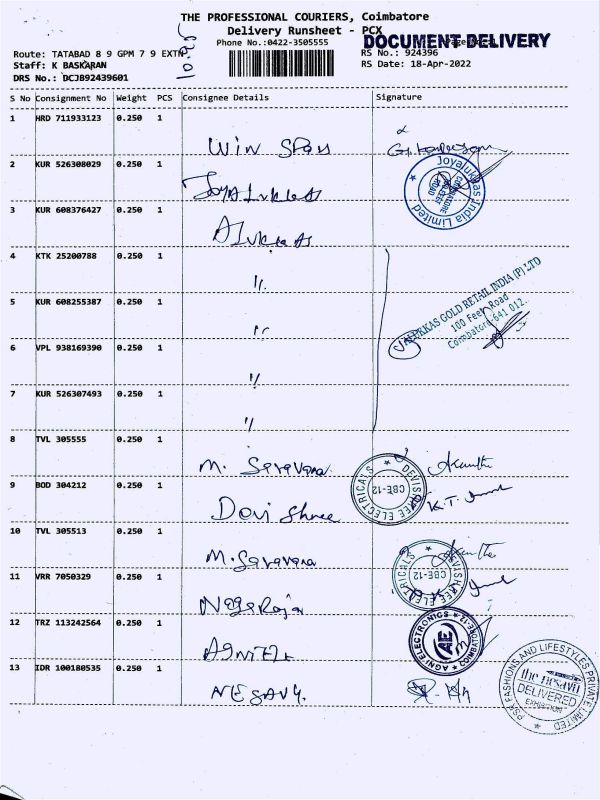 THE PROFESSIONAL COURIERS, Coimbatore
Delivery Runsheet - PCX
Phone No.:0422-3505555
DOCUMENT DELIVERY
Route: TATABAD 8 9 GPM 7 9 EXTN
RS No.: 924396
Staff: K BASKARAN
RS Date: 18-Apr-2022
DRS No.: DCJB92439601
S No Consignment No Weight PCS Consignee Details Signature
1 HRD 711933123 0.250 1
Win Stars
2 KUR 526308029 0.250 1
Joyalukkas
Joyalukkas India Limited
3 KUR 608376427 0.250 1
Alukkas
4 KTK 25200788 0.250 1
11.
5 KUR 608255387 0.250 1
11
JALUKKAS GOLD RETAIL INDIA (P) LTD
100 Feet Road
Coimbatore-641 012.
6 VPL 938169390 0.250 1
11
7 KUR 526307493 0.250 1
11
8 TVL 305555 0.250 1
M. Saravana
9 BOD 304212 0.250 1
Devi Shree
DEVISHREE ELECTRICALS
CBE-12
K.T.
10 TVL 305513 0.250 1
M. Saravana
11 VRR 7050329 0.250 1
Nagaraja
DEVISHREE ELECTRICALS
CBE-12
12 TRZ 113242564 0.250 1
AGNI ELE
AGNI ELECTRONICS
COIMBATORE-12
AIE
13 IDR 100180535 0.250 1
NESAVU.
PSR FASHIONS AND LIFESTYLES PRIVATE LIMITED
the nesavu
DELIVERED
EXHIBITION